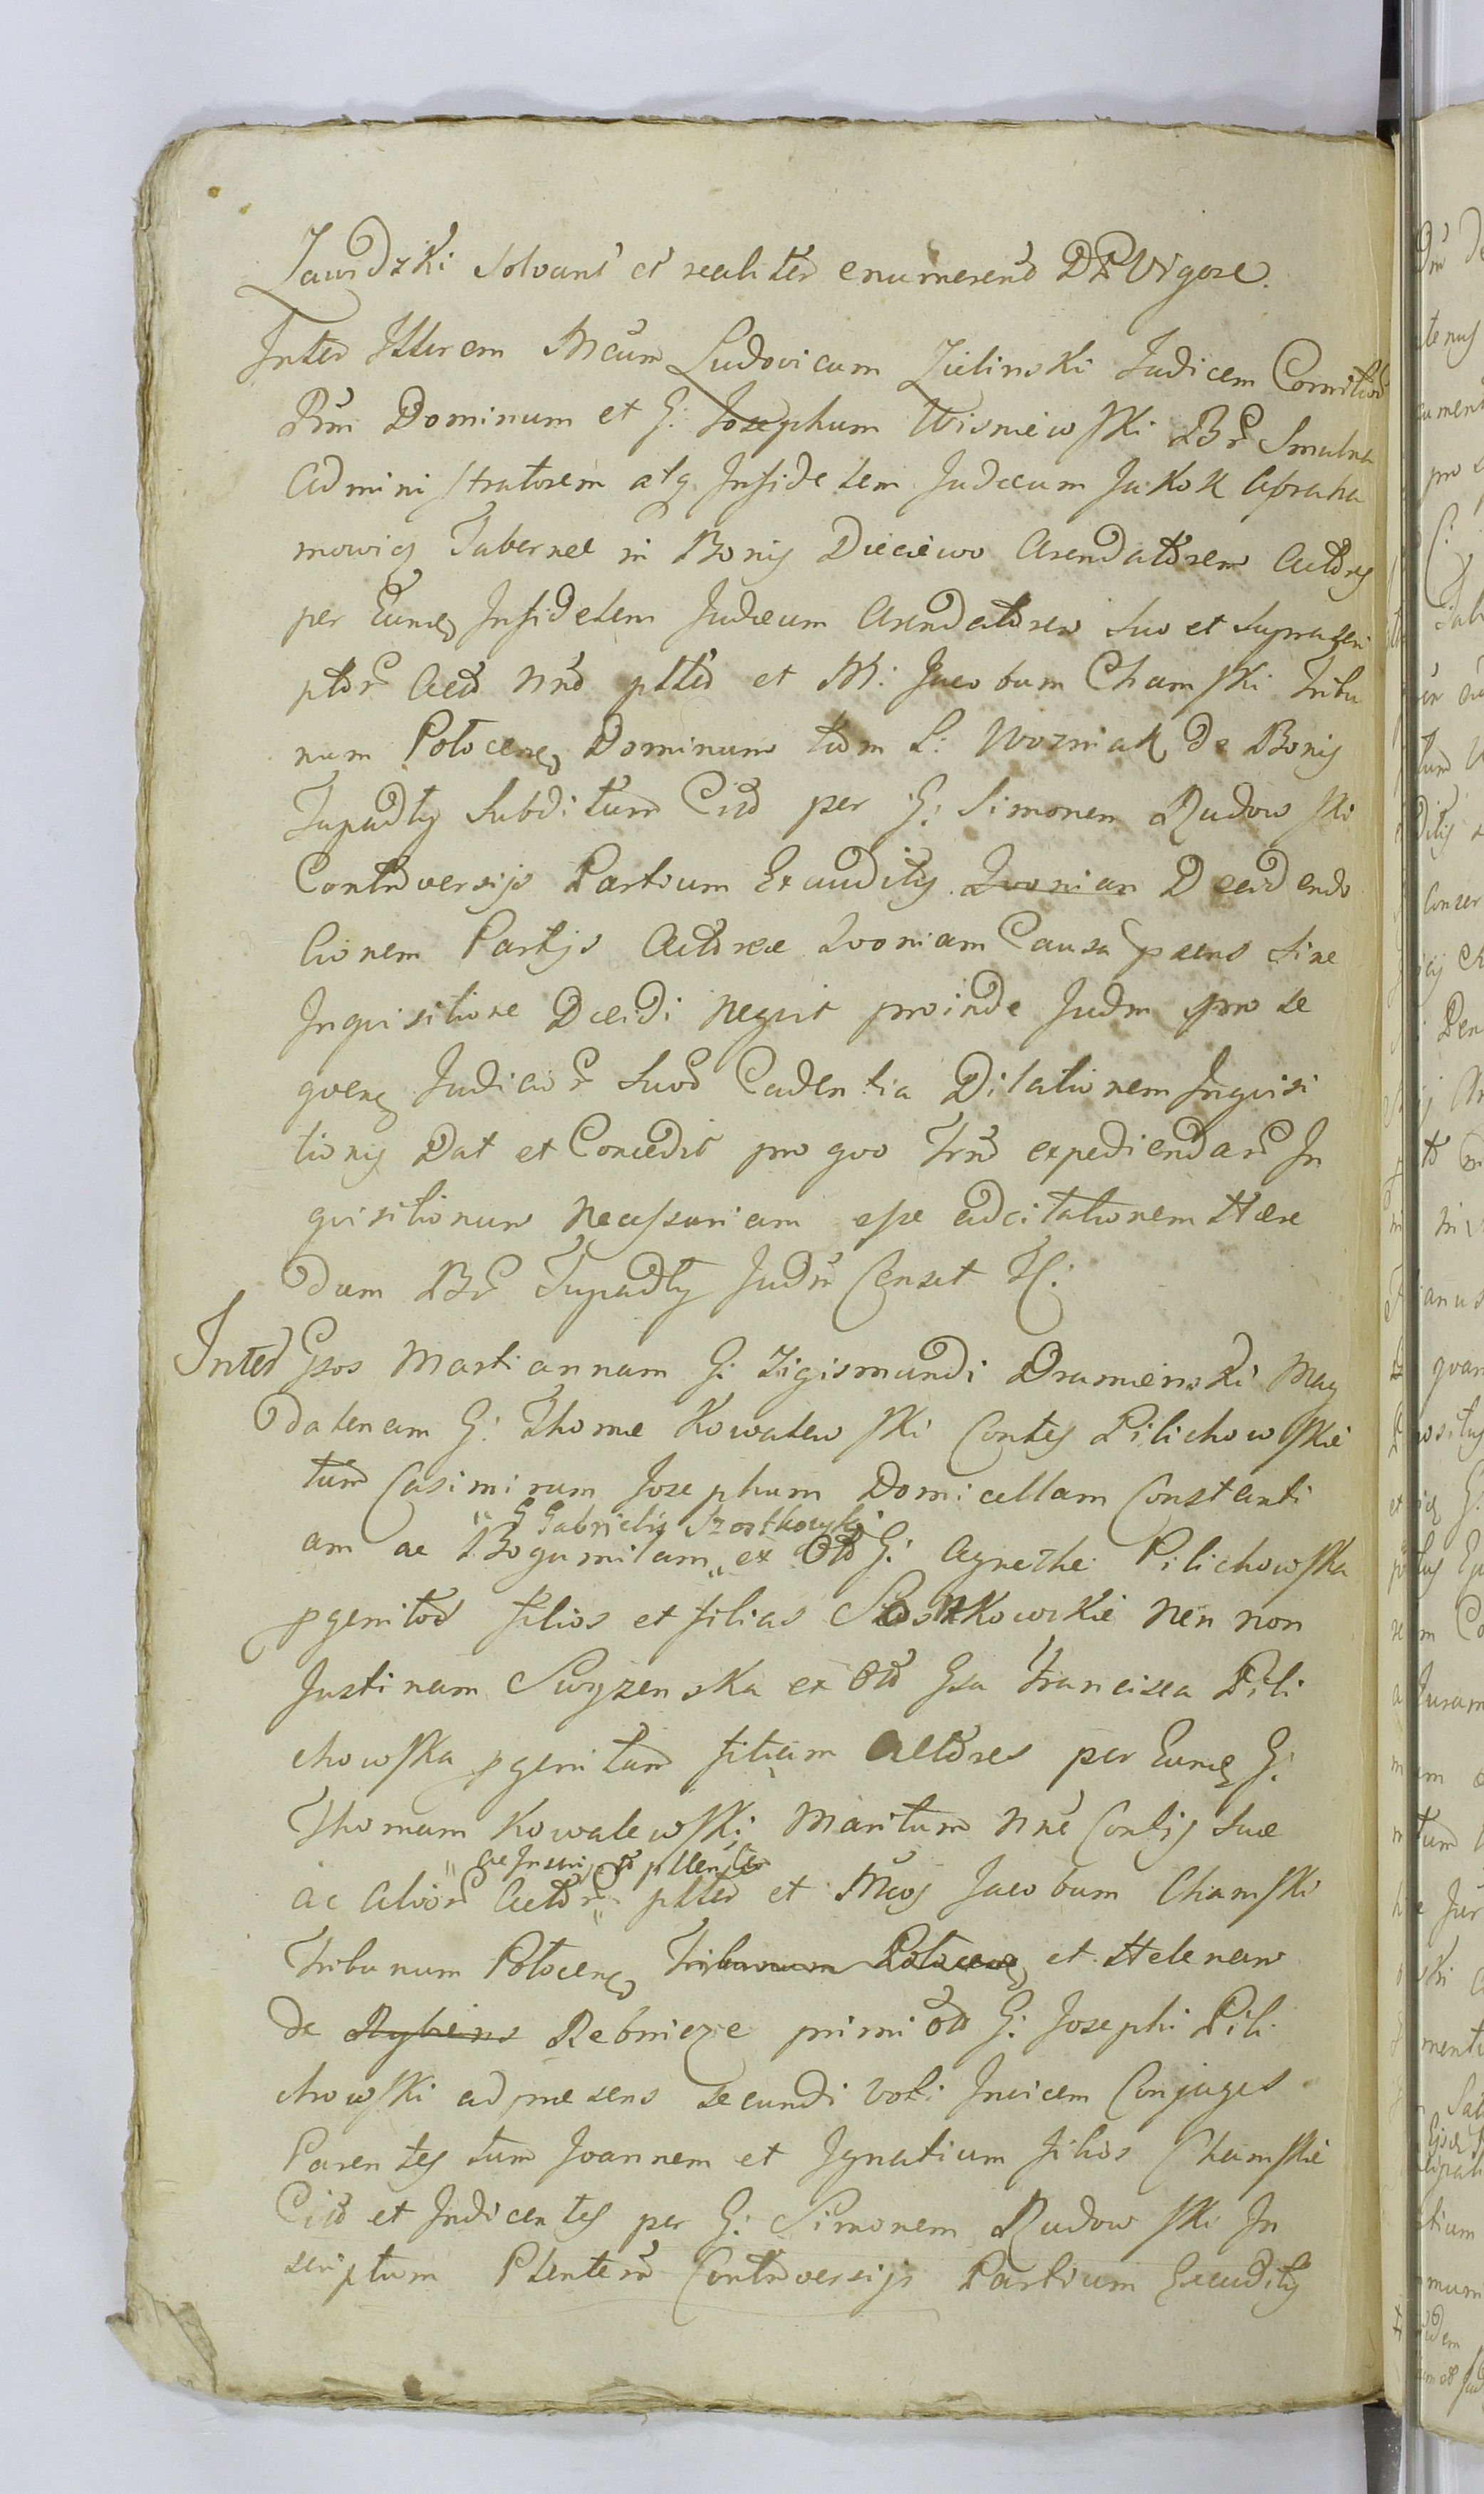 Zawidzki solvant et realiter enumerent D P Vigore.
Inter Illrem Mcum Ludovicum Zielinski Judicem
Dominum et G: Josephum Wisniewski Br Smulna
Administratorem atq Infidelem Judaeum Jakok Abraha
mowicz Tabernae in Bonis Dieciewo Arendatorem Actores
per Eund Infidelem Judaeum Arendatorem suo et suprascri
ptor Actor nne pltes et M: Jacobum Chamski Tribu
num Plocens Dominum tum L: Wozniak de Bonis
Tupadly Subditum Citt per G: Simonem Rudowski
Controversijs Partium Exauditis Qvoniam Deeidendo
tionem Partijs Actorae Qvoniam Causa ppens sine
Inqvisitione Decidi neqvit proinde Judm pro se
qvens Judicior Suor Cadentia Dilationem Inqvisi
tionis Dat et Concedit pro qvo Trno expediendar In
qvisitionum necessariam esse adcitationem Haere
dum Br Tupadly Judm Censet
Inter Gsos Mariannam G: Zigismundi Dramienski Mag
dalenam G: Thomae Kowalewski Contes Pilichowskie
tum Casimirum Josephum Domicellam Constanti
am ac Bogumilam ex olt G: Agnethe Pilichowska
G Gabrielis Szostkowski
pgenitos filios et filias Szostkowskie nen non
Justinam Swyzenska ex olt Gsa Francisca Pili
chowska pgenitam filiam Actores per Eund G:
Thomam Kowalewski Maritum nne Contis Suae
ac Alior Actor pltes et Mcos Jacobum Chamski
Tribunum Plocens Tribunum Plocens et Helenam
de Rybiens Rebnieze primi olt G: Josephi Pili
chowski ad praesens secundi voti Invicem Conjuges
Parentes tum Joannem et Ignatium filios Chamskie
Citt et Indicentes per G: Simonem Rudowski In
scriptum Plentem Controversijs Partium Exauditis